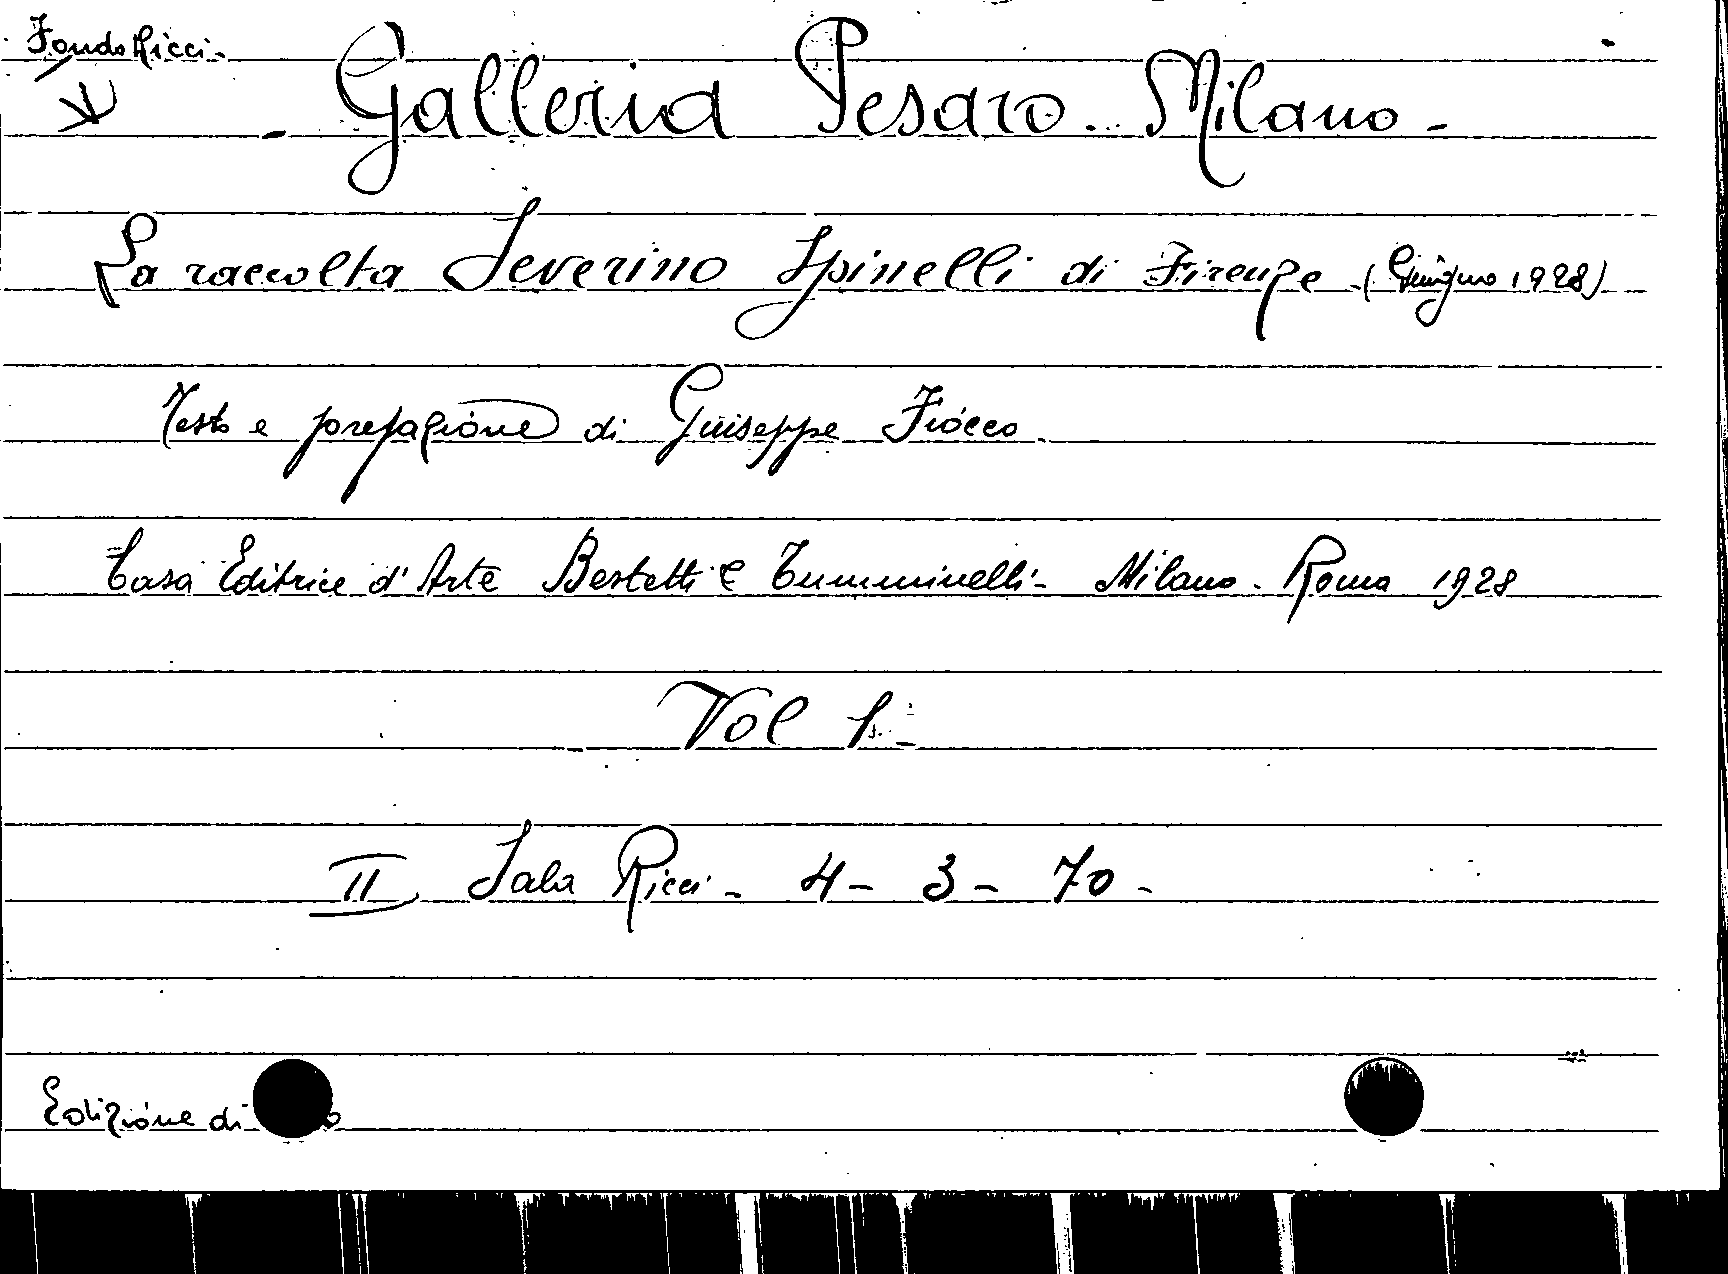 Fondo Ricci -
- Galleria Pesaro - Milano -
La raccolta Severino Spinelli di Firenze - (Giugno 1928)
Testo e prefazione di Giuseppe Fiocco -
Casa Editrice d'Arte Bestetti e Tumminelli - Milano - Roma 1928
Vol 1 -
II Sala Ricci - 4 - 3 - 70 -
Edizione di